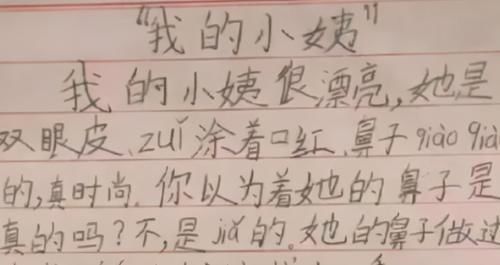 "我的小姨"
我的小姨很漂亮,她是
双眼皮、zuǐ涂着口红、鼻子qiào qià
的,真时尚。你以为着她的鼻子是
真的吗?不,是jiǎ的。她的鼻子做过